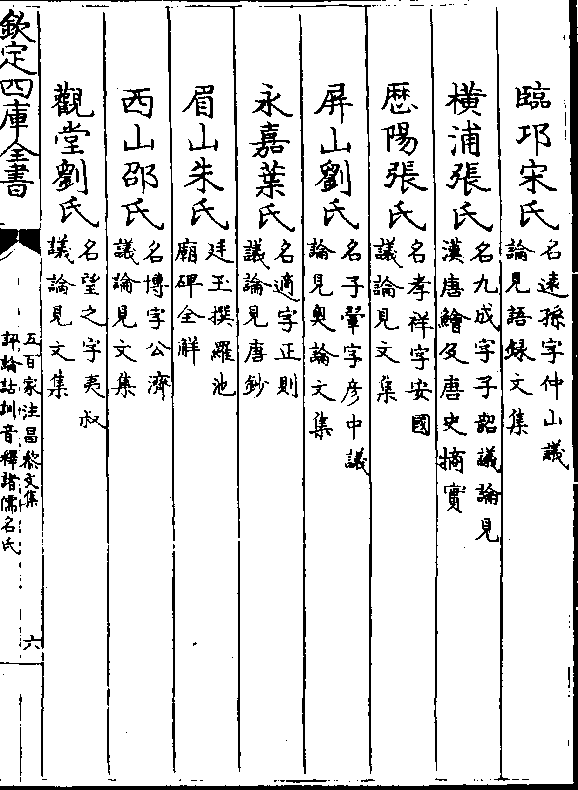 臨邛宋氏名遠孫字仲山議
論見語録文集
橫浦張氏名九成字子韶議論見
漢唐鱠及唐史摘實
歴陽張氏名孝祥字安國
議論見文集
屏山劉氏名子翬字彦中議
論見奥論文集
永嘉葉氏名適字正則
議論見唐鈔
眉山朱氏廷玉撰羅池
廟碑全解
西山邵氏名博字公濟
議論見文集
觀堂劉氏名望之字夷叔
議論見文集
欽定四庫全書
五百家注昌黎文集
評論詁訓音釋諸儒名氏
六